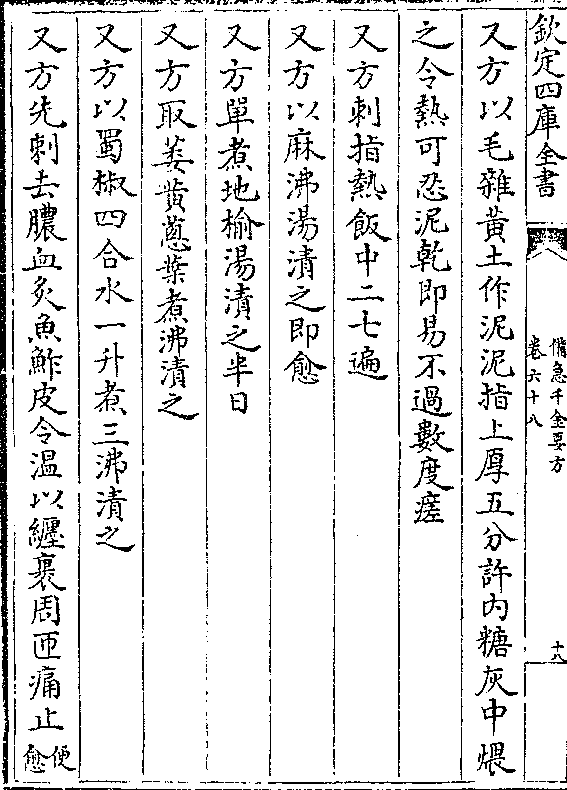 欽定四庫全書
備急千金要方
卷六十八
十八
又方以毛雜黃土作泥泥指上厚五分許内糖灰中煨
之令熱可忍泥乾即易不過數度瘥
又方刺指熱飯中二七遍
又方以麻沸湯漬之即愈
又方單煮地榆湯漬之半日
又方取萎黃蔥葉煮沸漬之
又方以蜀椒四合水一升煮三沸漬之
又方先刺去膿血炙魚鮓皮令温以纒裹周匝痛止便愈